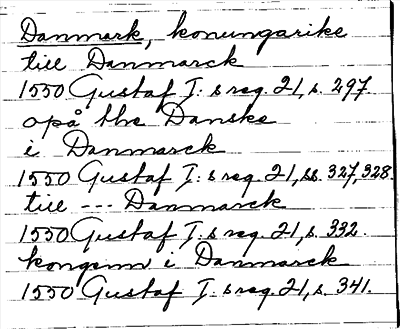 Danmark, konungarike
till Danmarck
1550 Gustaf I:s reg. 21, s. 297.
opå the Danske
i Danmarck
1550 Gustaf I:s reg. 21, ss. 327, 328.
till --- Danmarck
1550 Gustaf I:s reg. 21, s. 332.
kongenn i Danmarck
1550 Gustaf I:s reg. 21, s. 341.